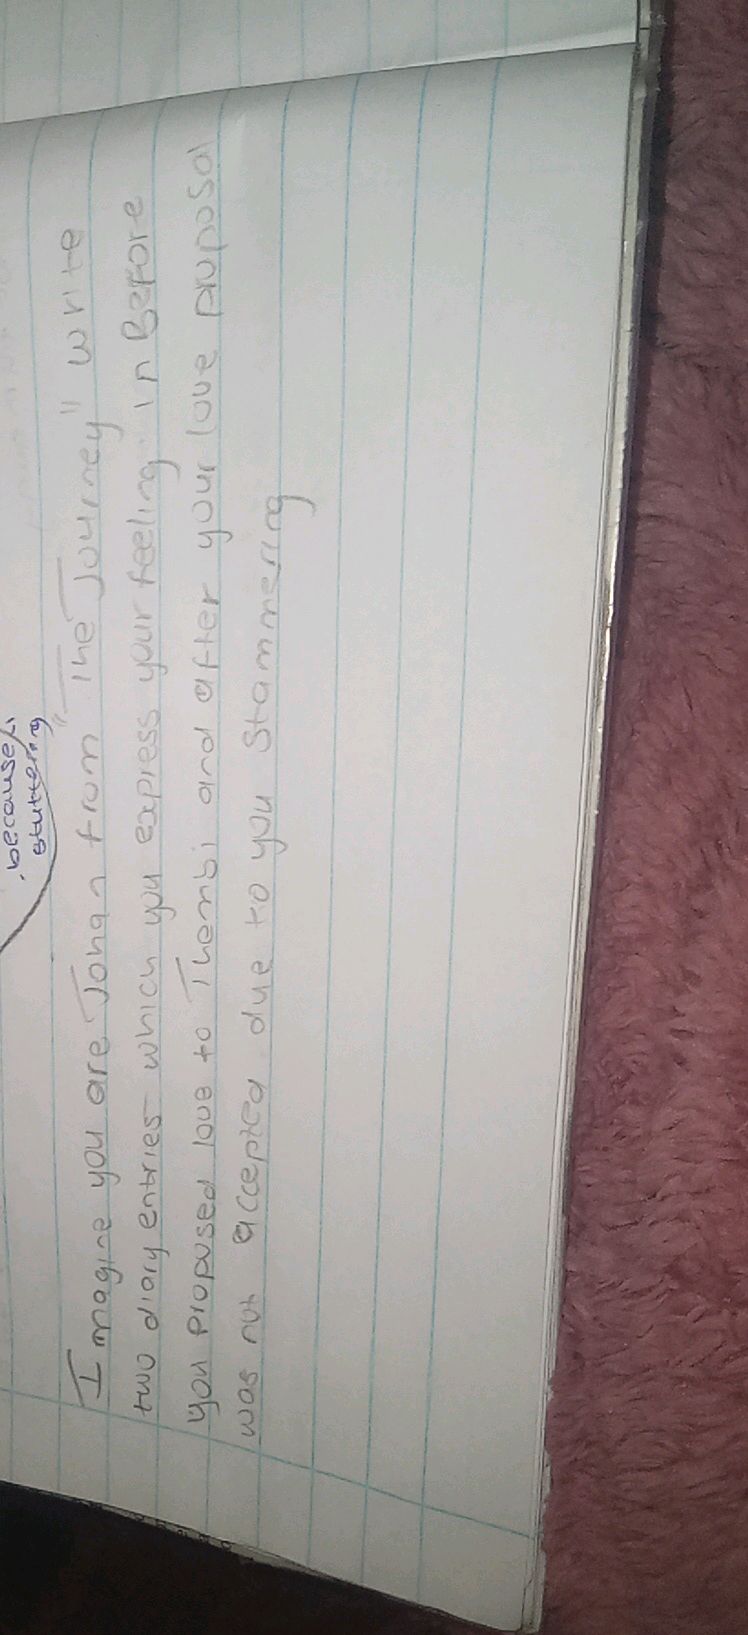 because
stuttering
Imagine you are Johan from "The Journey" write
two diary entries which you express your feeling in Before
you proposed love to Thembi and after your love proposal
was not accepted due to you stammering